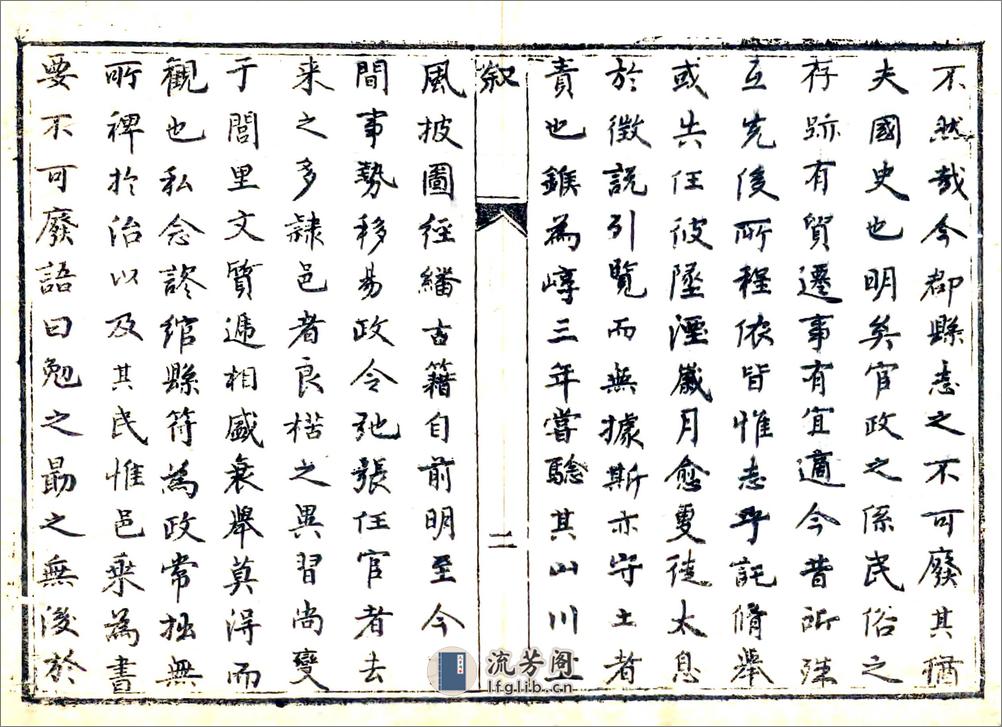 不然哉今郡縣志之不可廢其猶
夫國史也明矣官政之係民俗之
存跡有質遷事有宜適今昔所殊
立先後所程依皆惟志乎託脩舉
或失任彼墜湮歲月愈更徒太息
於徵說引覽而無據斯亦守土者
責也鍭為崞三年嘗驗其山川土
叙
二
風披圖經繙古籍自前明至今
間事勢移易政令弛張任官者去
来之多隷邑者良楛之異習尚變
于閭里文質遞相盛衰舉莫得而
觀也私念謬綰縣符為政常拙無
所裨於治以及其民惟邑乘為書
要不可廢語曰勉之勗之無後於
流芳阁
lfglib.cn